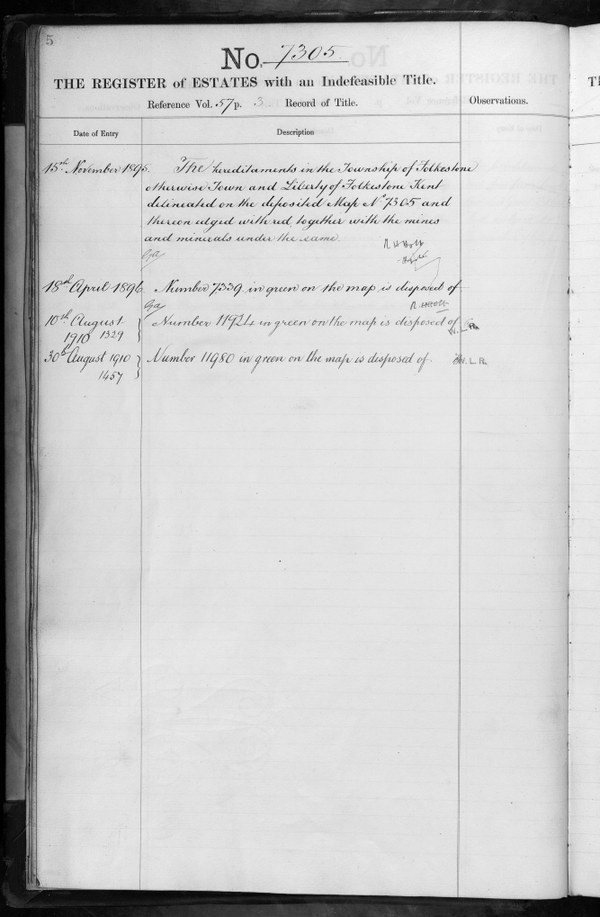 5
No. 7305
THE REGISTER of ESTATES with an Indefeasible Title.
Reference Vol. 57 p. 3 Record of Title.
Observations.
Date of Entry
Description
15th November 1895. The hereditaments in the Township of Folkestone
otherwise Town and Liberty of Folkestone Kent
delineated on the deposited Map No 7305 and
thereon edged with red together with the mines
and minerals under the same
R H Holt
18th April 1896 Number 7339 in green on the map is disposed of
R H Holt
10th August Number 11924 in green on the map is disposed of
1910 1329
30th August 1910 Number 11980 in green on the map is disposed of. H. L. R.
1457